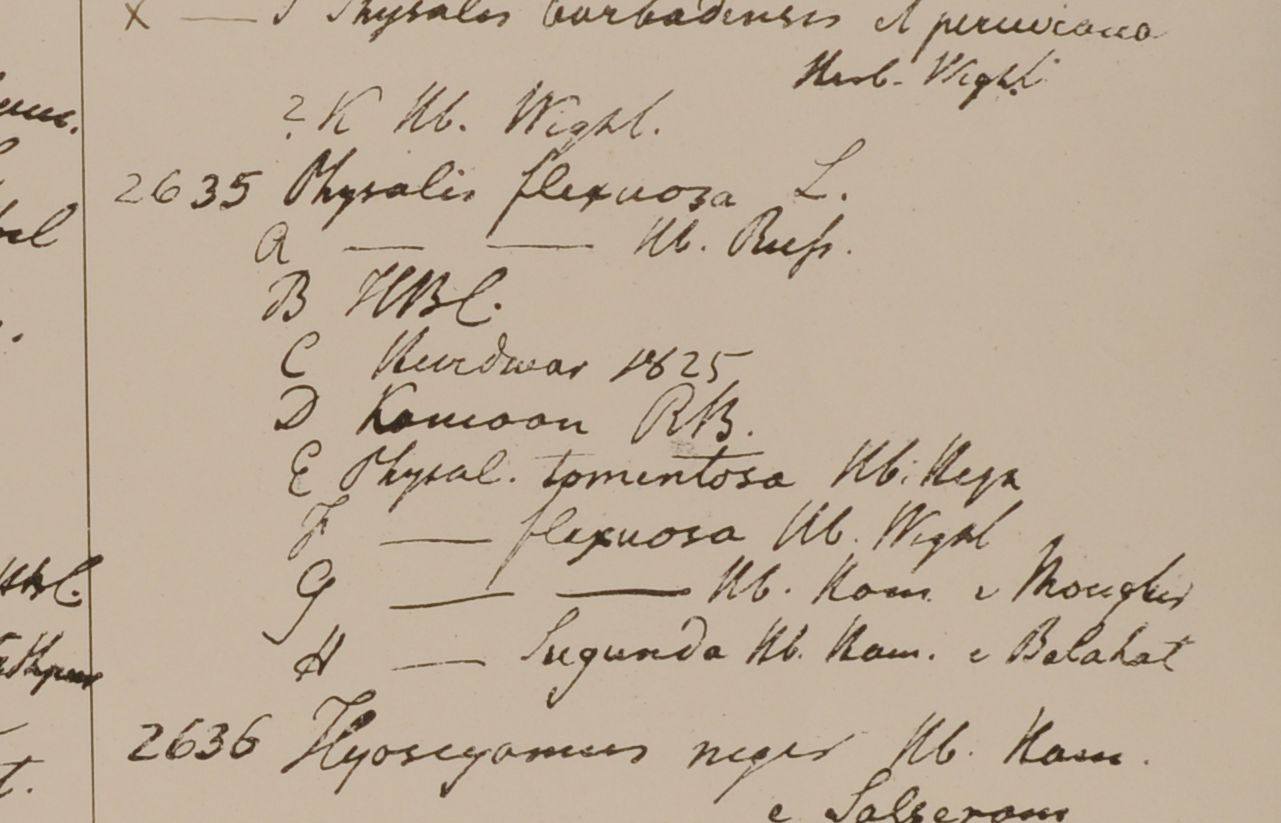 x — J Physalis barbadensis et peruviana
Herb. Wight
? K Hb. Wight.
2635 Physalis flexuosa L.
a — — Hb. Russ.
B HBC.
C Hurdwar 1825
D Kamoon RB.
E Physal. tomentosa Hb. Heyn
F — flexuosa Hb. Wight
G — — Hb. Ham. e Monghir
H — Sugunda Hb. Ham. e Belahat
2636 Hyoscyamus niger Hb. Ham.
e